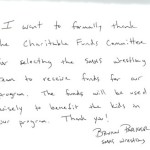 I want to formally thank
the Charitable Funds Committee
for selecting the wrestling
team to receive funds for our
program. The funds will be used
wisely to benefit the kids in
our program. Thank you!
wrestling